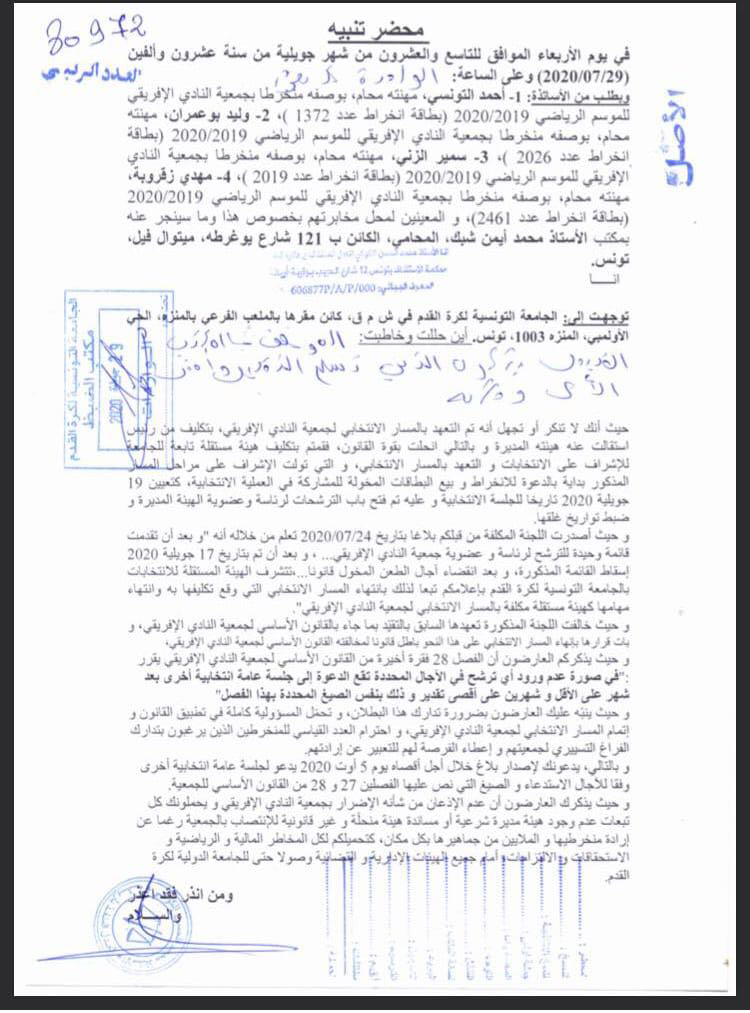 محضر تنبيه
80972
العدد الرتيبي
الأصل
في يوم الأربعاء الموافق للتاسع والعشرون من شهر جويلية من سنة عشرون وألفين
(2020/07/29) وعلى الساعة:
وبطلب من الأساتذة: 1- أحمد التونسي، مهنته محام، بوصفه منخرطا بجمعية النادي الإفريقي
للموسم الرياضي 2020/2019 (بطاقة انخراط عدد 1372 )، 2- وليد بوعمران، مهنته
محام، بوصفه منخرطا بجمعية النادي الإفريقي للموسم الرياضي 2020/2019 (بطاقة
انخراط عدد 2026 )، 3- سمير الزني، مهنته محام، بوصفه منخرطا بجمعية النادي
الإفريقي للموسم الرياضي 2020/2019 (بطاقة انخراط عدد 2019 )، 4- مهدي زقروبة،
مهنته محام، بوصفه منخرطا بجمعية النادي الإفريقي للموسم الرياضي 2020/2019
(بطاقة انخراط عدد 2461)، و المعينين لمحل مخابرتهم بخصوص هذا وما سينجر عنه
بمكتب الأستاذ محمد أيمن شبك، المحامي، الكائن ب 121 شارع يوغرطه، ميتوال فيل،
تونس.
606877P/A/P/000
انــا
توجهت إلى: الجامعة التونسية لكرة القدم في ش م ق، كائن مقرها بالملعب الفرعي بالمنزه، الحي
الأولمبي، المنزه 1003، تونس. أين حللت وخاطبت:
الجامعة التونسية لكرة القدم
مكتب الضبط
29 جويلية 2020
الواردات
حيث أنك لا تنكر أو تجهل أنه تم التعهد بالمسار الانتخابي لجمعية النادي الإفريقي، بتكليف من رئيس
استقالت عنه هيئته المديرة و بالتالي انحلت بقوة القانون، فقمتم بتكليف هيئة مستقلة تابعة للجامعة
للإشراف على الانتخابات و التعهد بالمسار الانتخابي، و التي تولت الإشراف على مراحل المسار
المذكور بداية بالدعوة للانخراط و بيع البطاقات المخولة للمشاركة في العملية الانتخابية، كتعيين 19
جويلية 2020 تاريخا للجلسة الانتخابية و عليه تم فتح باب الترشحات لرئاسة وعضوية الهيئة المديرة و
ضبط تواريخ غلقها.
و حيث أصدرت اللجنة المكلفة من قبلكم بلاغا بتاريخ 2020/07/24 تعلم من خلاله أنه "و بعد أن تقدمت
قائمة وحيدة للترشح لرئاسة و عضوية جمعية النادي الإفريقي... ، و بعد أن تم بتاريخ 17 جويلية 2020
إسقاط القائمة المذكورة، و بعد انقضاء آجال الطعن المخول قانونا...،تتشرف الهيئة المستقلة للانتخابات
بالجامعة التونسية لكرة القدم بإعلامكم تبعا لذلك بانتهاء المسار الانتخابي التي وقع تكليفها به وانتهاء
مهامها كهيئة مستقلة مكلفة بالمسار الانتخابي لجمعية النادي الإفريقي".
و حيث خالفت اللجنة المذكورة تعهدها السابق بالتقيّد بما جاء بالقانون الأساسي لجمعية النادي الإفريقي، و
بات قرارها بإنهاء المسار الانتخابي على هذا النحو باطل قانونا لمخالفته القانون الأساسي لجمعية النادي الإفريقي.
و حيث يذكركم العارضون أن الفصل 28 فقرة أخيرة من القانون الأساسي لجمعية النادي الإفريقي يقرر
:"في صورة عدم ورود أي ترشح في الآجال المحددة تقع الدعوة إلى جلسة عامة انتخابية أخرى بعد
شهر على الأقل و شهرين على أقصى تقدير و ذلك بنفس الصيغ المحددة بهذا الفصل"
و حيث ينبّه عليك العارضون بضرورة تدارك هذا البطلان، و تحمّل المسؤولية كاملة في تطبيق القانون و
إتمام المسار الانتخابي لجمعية النادي الإفريقي، و احترام العدد القياسي للمنخرطين الذين يرغبون بتدارك
الفراغ التسييري لجمعيتهم و إعطاء الفرصة لهم للتعبير عن إرادتهم.
و بالتالي، يدعونك لإصدار بلاغ خلال أجل أقصاه يوم 5 أوت 2020 يدعو لجلسة عامة انتخابية أخرى
وفقا للآجال الاستدعاء و الصيغ التي نص عليها الفصلين 27 و 28 من القانون الأساسي للجمعية.
و حيث يذكرك العارضون أن عدم الإذعان من شأنه الإضرار بجمعية النادي الإفريقي و يحملونك كل
تبعات عدم وجود هيئة مديرة شرعية أو مساندة هيئة منحلّة و غير قانونية للإنتصاب بالجمعية رغما عن
إرادة منخرطيها و الملايين من جماهيرها بكل مكان، كتحميلكم لكل المخاطر المالية و الرياضية و
الاستحقاقات و الالتزاجات و أمام جميع الهيئات الإدارية و القضائية وصولا حتى للجامعة الدولية لكرة
القدم.
ومن انذر فقد اعذر
والســـلام